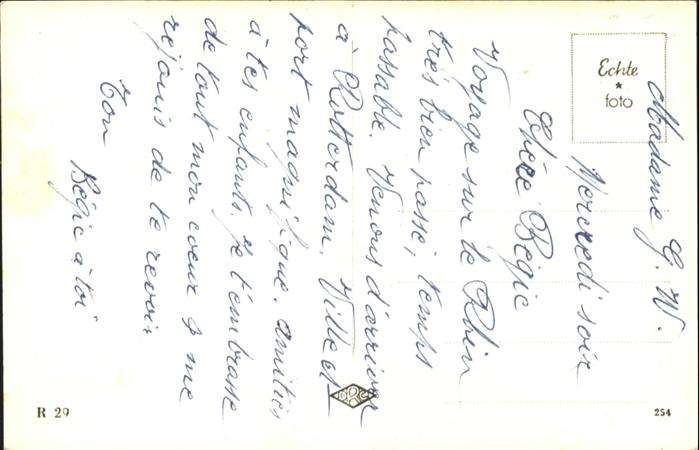 Madame G. W.
Mercredi soir
Chère Régie
Voyage sur le Rhin
très bien passé, temps
passable. Venons d'arriver
à Rotterdam. Ville et
port magnifique. amitiés
à tes enfants. Je t'embrasse
de tout mon coeur & me
rejouis de te revoir.
Ton
à toi
Echte
foto
R 29
254